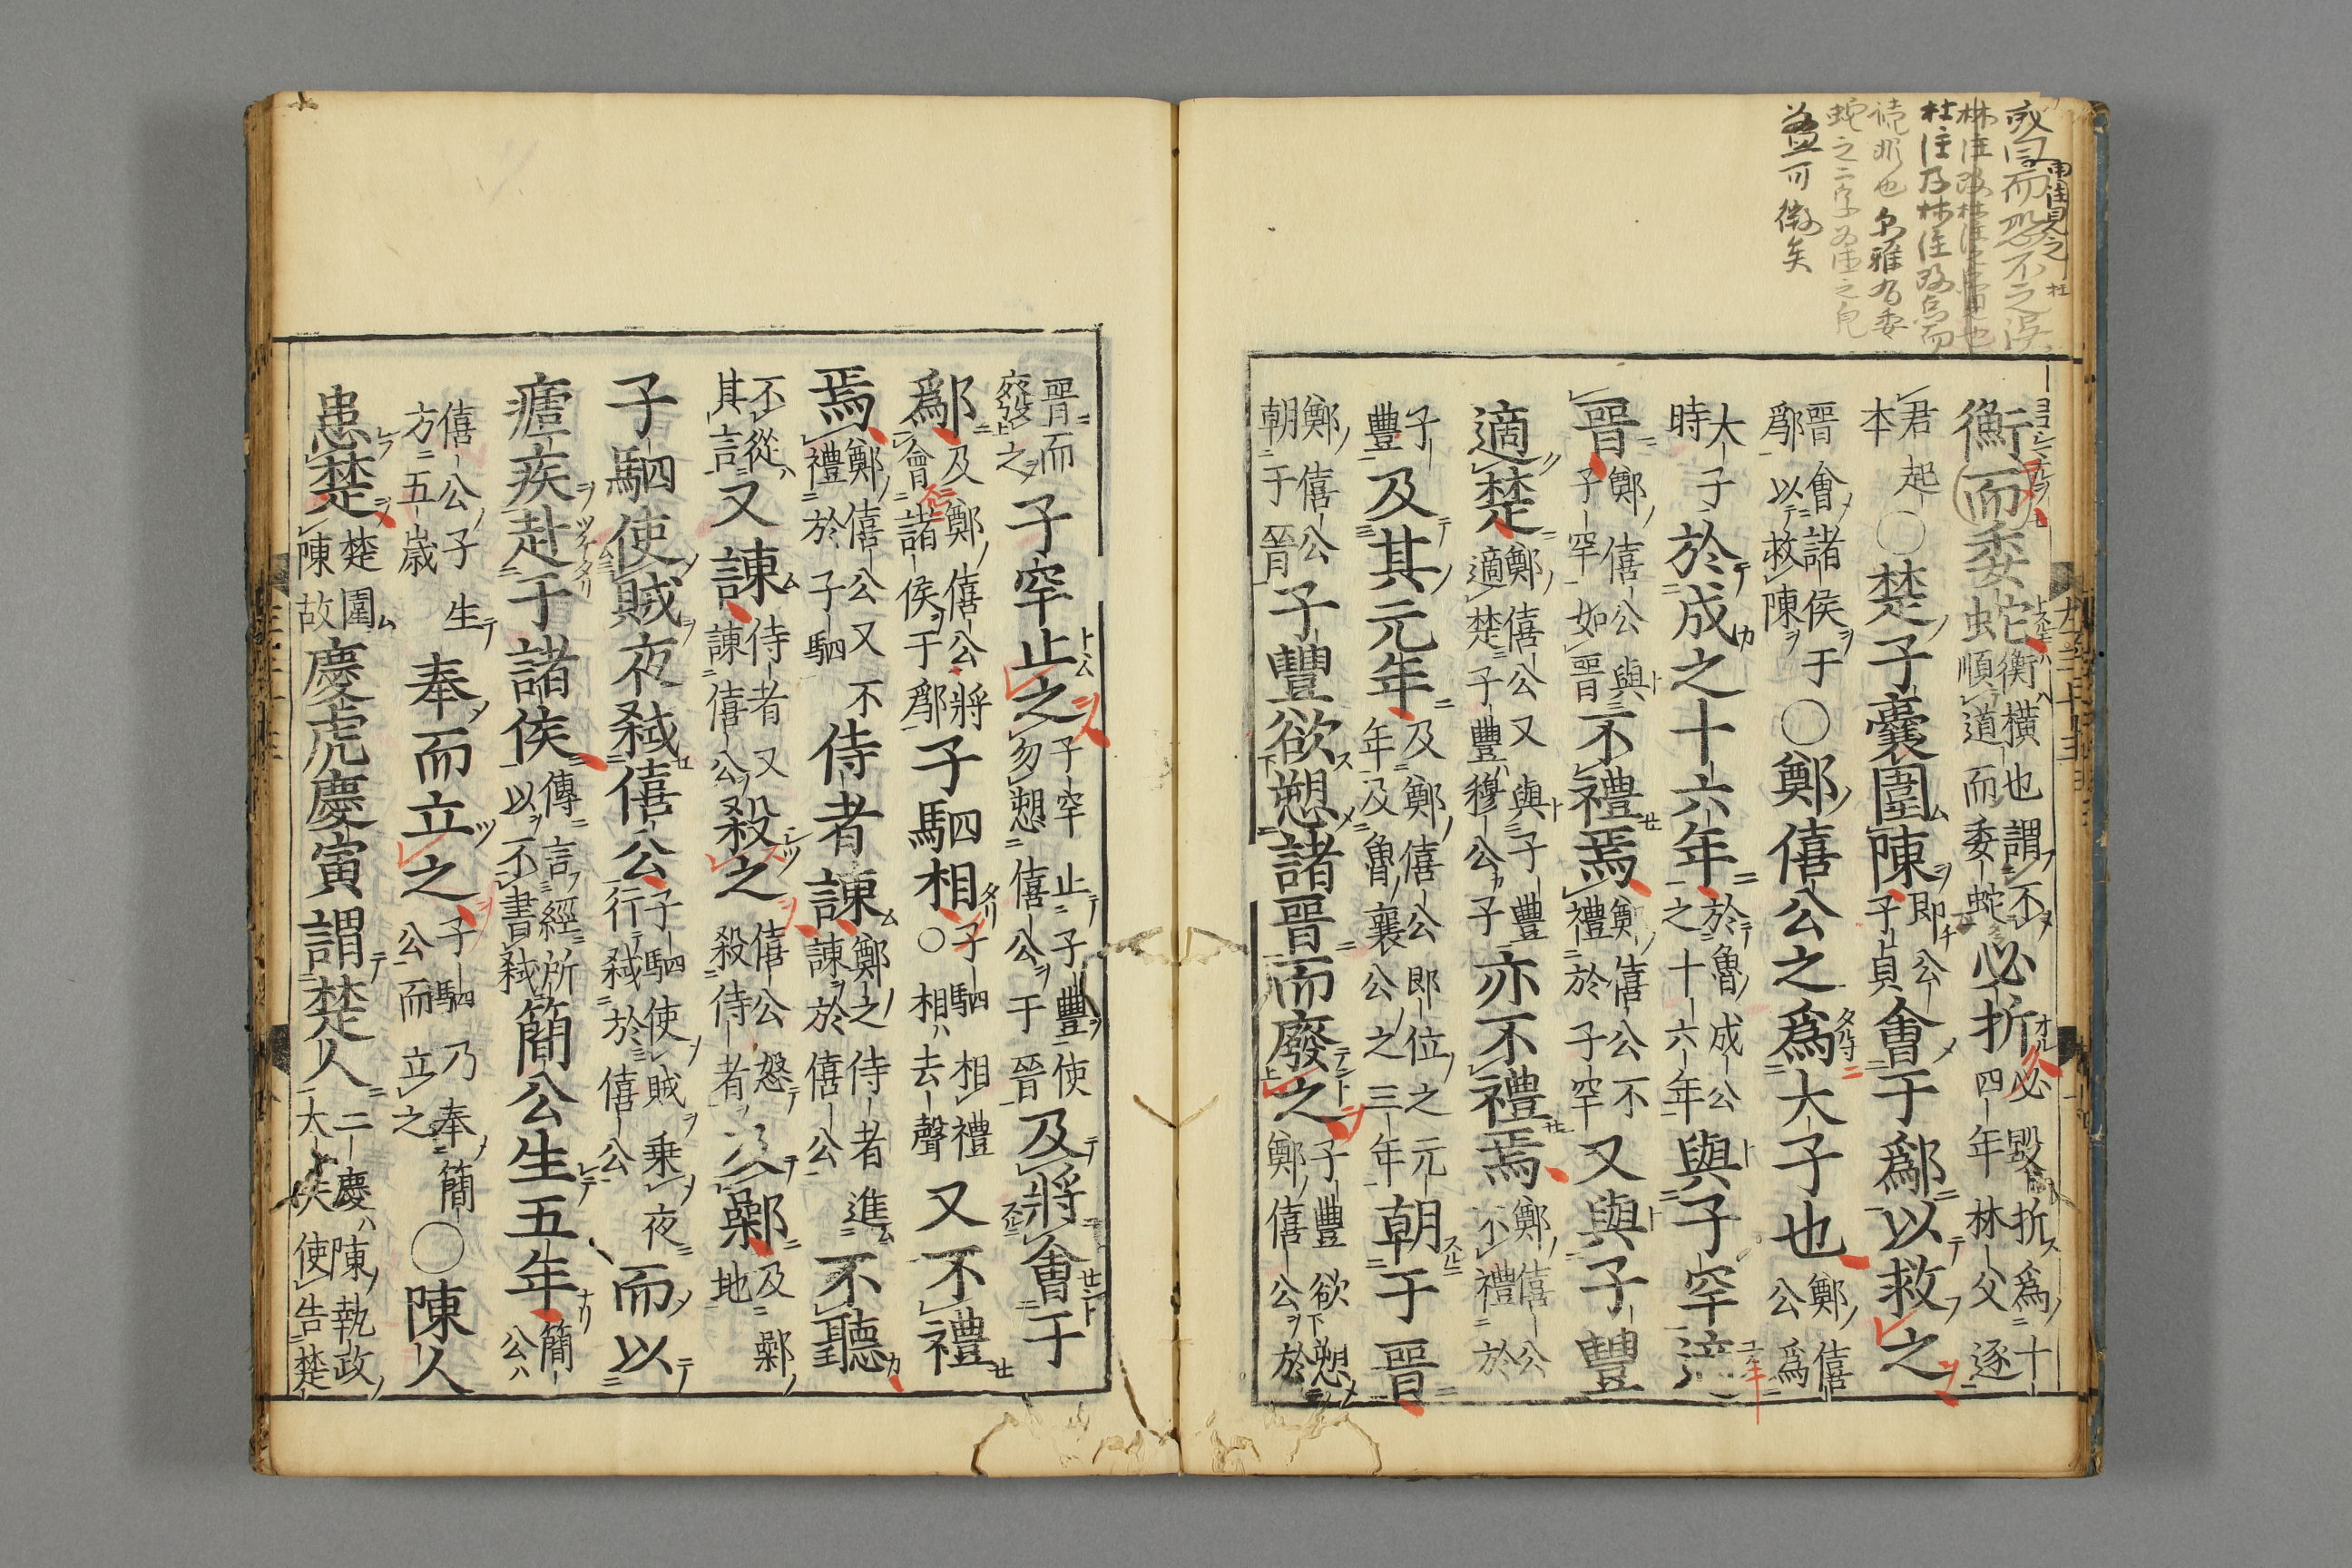 益可徵矣
衡而委蛇衡橫也謂不順道而委蛇必折必毀折爲十四年林父逐
君起本○楚子囊圍陳即公子貞會于鄬以救之
晉會諸侯于鄬以救陳○鄭僖公之爲大子也鄭僖公爲
大子時於成之十六年於魯成公之十六年與子罕適
晉鄭僖公與子罕如晉不禮焉鄭僖公不禮於子罕又與子豐
適楚鄭僖公又與子豐適楚子豐穆公子亦不禮焉鄭僖公不禮於
子豐及其元年及鄭僖公即位之元年及魯襄公之三年朝于晉
鄭僖公朝于晉子豐欲愬諸晉而廢之子豐欲愬鄭僖公於
晉而廢之子罕止之子罕止子豐使勿愬僖公于晉及將會于
鄬及鄭僖公將會諸侯于鄬子駟相子駟相禮○相去聲又不禮
焉鄭僖公又不禮於子駟侍者諫鄭之侍者進諫於僖公不聽
不從其言又諫侍者又諫僖公殺之僖公怒殺侍者及鄵及鄵地
子駟使賊夜弒僖公子駟使賊乘夜行弒於僖公而以
瘧疾赴于諸侯傳言經所以不書弒簡公生五年簡公
僖公子生方五歲奉而立之子駟乃奉簡公而立之○陳人
患楚楚圍陳故慶虎慶寅謂楚人二慶陳執政大夫使告楚